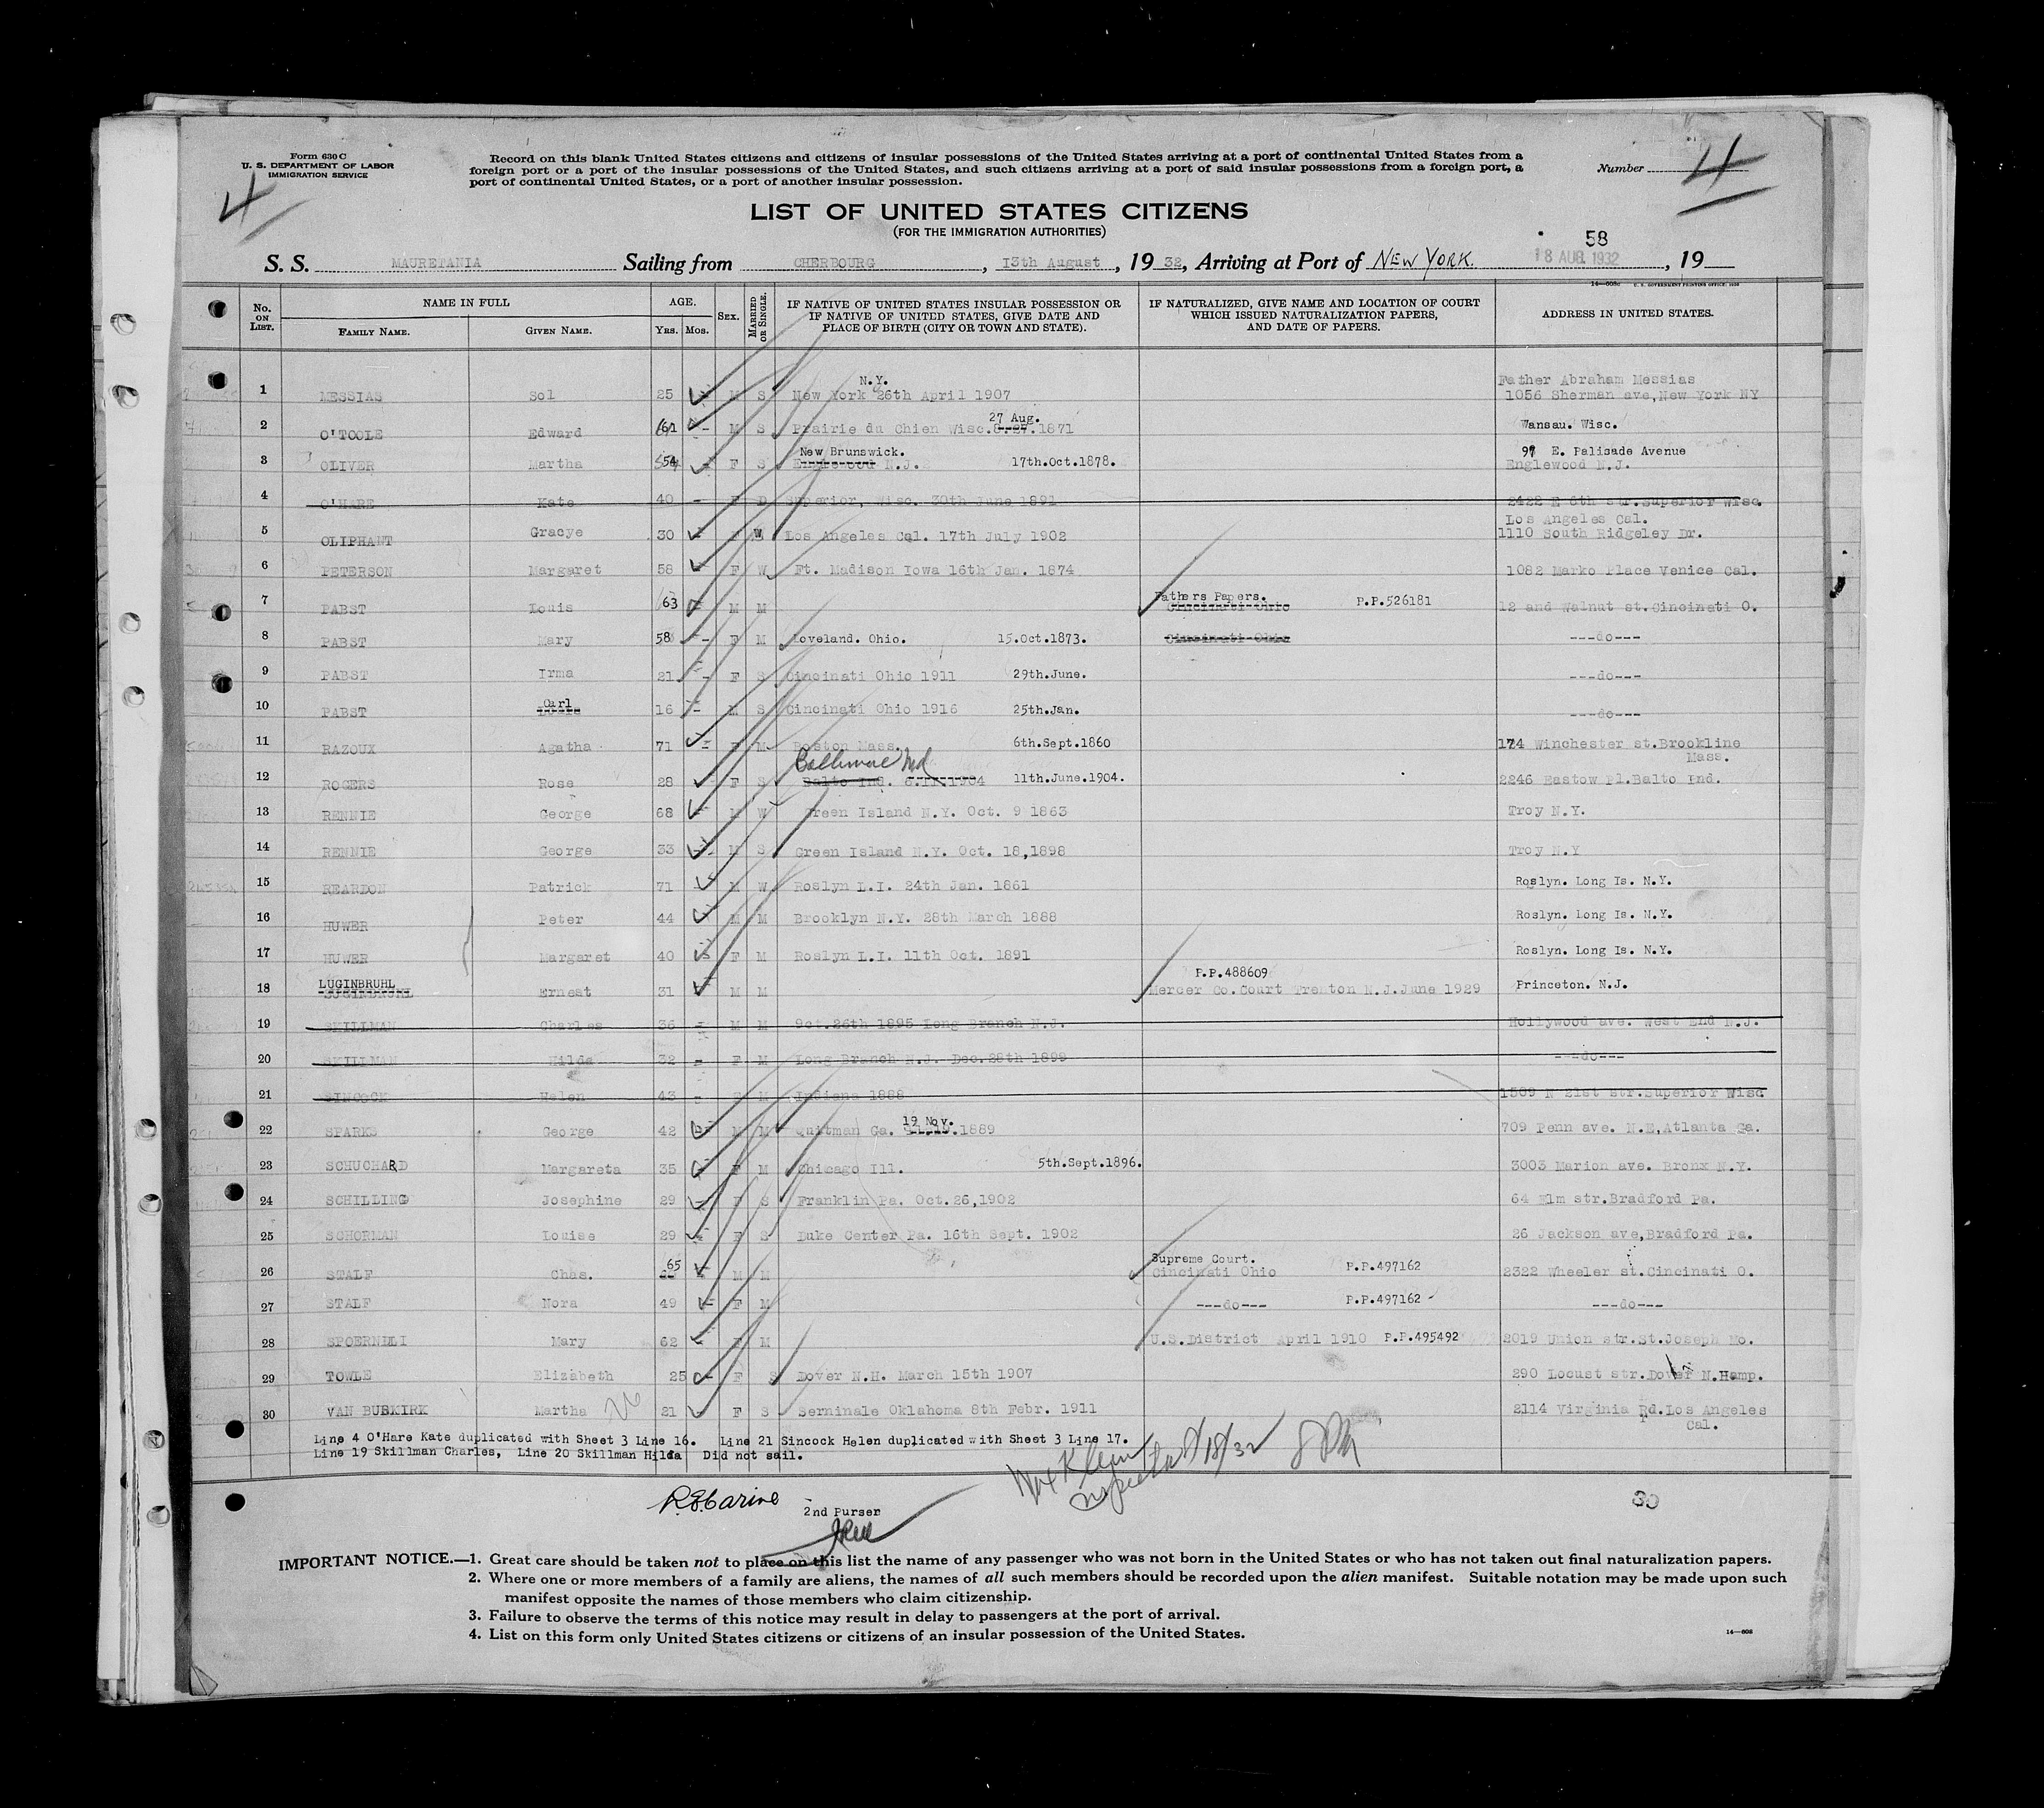 Form 630 C
U. S. DEPARTMENT OF LABOR
IMMIGRATION SERVICE
4
Record on this blank United States citizens and citizens of insular possessions of the United States arriving at a port of continental United States from a
foreign port or a port of the insular possessions of the United States, and such citizens arriving at a port of said insular possessions from a foreign port, a
port of continental United States, or a port of another insular possession.
Number 4
LIST OF UNITED STATES CITIZENS
(FOR THE IMMIGRATION AUTHORITIES)
58
S. S. MAURETANIA Sailing from CHERBOURG, 13th August, 1932, Arriving at Port of NEW YORK. 18 AUG. 1932, 19
No. ON LIST. NAME IN FULL FAMILY NAME. GIVEN NAME. AGE. YRS. MOS. SEX. MARRIED OR SINGLE. IF NATIVE OF UNITED STATES INSULAR POSSESSION OR IF NATIVE OF UNITED STATES, GIVE DATE AND PLACE OF BIRTH (CITY OR TOWN AND STATE). IF NATURALIZED, GIVE NAME AND LOCATION OF COURT WHICH ISSUED NATURALIZATION PAPERS, AND DATE OF PAPERS. ADDRESS IN UNITED STATES.
N.Y. Father Abraham Messias
1 MESSIAS Sol 25 M S New York 26th April 1907 1056 Sherman ave, New York NY
27 Aug.
2 O'TOOLE Edward 61 - M S Prairie du Chien Wisc. 8.27.1871 Wansau. Wisc.
New Brunswick. 97 E. Palisade Avenue
3 OLIVER Martha 54 F S Englewood N.J. 17th.Oct.1878. Englewood N.J.
4 O'HARE Kate 40 - F D Superior, Wisc. 30th June 1891 2422 E 6th str.Superior Wisc.
Los Angeles Cal.
5 OLIPHANT Gracye 30 - F W Los Angeles Cal. 17th July 1902 1110 South Ridgeley Dr.
6 PETERSON Margaret 58 - F W Ft. Madison Iowa 16th Jan. 1874 1082 Marko Place Venice Cal.
Fathers Papers.
7 PABST Louis 63 M M Cincinati Ohio P.P.526181 12 and Walnut st.Cincinati O.
8 PABST Mary 58 - F M Loveland. Ohio. 15.Oct.1873. Cincinati Ohio ---do---
9 PABST Irma 21 - F S Cincinati Ohio 1911 29th.June. ---do---
Carl
10 PABST 16 - M S Cincinati Ohio 1916 25th.Jan. ---do---
11 RAZOUX Agatha 71 - F M Boston Mass. 6th.Sept.1860 174 Winchester st.Brookline
Mass.
Baltimore Md
12 ROGERS Rose 28 F S Balto Ind. 6.11.1904 11th.June.1904. 2246 Eastow Pl.Balto Ind.
13 RENNIE George 68 - M W Green Island N.Y. Oct. 9 1863 Troy N.Y.
14 RENNIE George 33 - M S Green Island N.Y. Oct. 18,1898 Troy N.Y
15 REARDON Patrick 71 M W Roslyn L.I. 24th Jan. 1861 Roslyn. Long Is. N.Y.
16 HUWER Peter 44 M M Brooklyn N.Y. 28th March 1888 Roslyn. Long Is. N.Y.
17 HUWER Margaret 40 F M Roslyn L.I. 11th Oct. 1891 Roslyn. Long Is. N.Y.
LUGINBRUHL P.P.488609
18 LUGINBRUHL Ernest 31 M M Mercer Co.Court Trenton N.J.June 1929 Princeton. N.J.
19 SKILLMAN Charles 36 - M M Oct.26th 1895 Long Branch N.J. Hollywood ave. West End N.J.
20 SKILLMAN Hilda 32 - F M Long Branch N.J. Dec.28th 1899 ---do---
21 SINCOCK Helen 43 - F M Indiana 1888 1589 N 21st str.Superior Wisc
19 Nov.
22 SPARKS George 42 M M Quitman Ga. 1889 709 Penn ave. N.E,Atlanta Ga.
23 SCHUCHARD Margareta 35 F M Chicago Ill. 5th.Sept.1896. 3003 Marion ave. Bronx N.Y.
24 SCHILLING Josephine 29 - F S Franklin Pa. Oct.26,1902 64 Elm str.Bradford Pa.
25 SCHORMAN Louise 29 F S Duke Center Pa. 16th Sept. 1902 26 Jackson ave,Bradford Pa.
65 Supreme Court.
26 STALF Chas. M M Cincinati Ohio P.P.497162 2322 Wheeler st.Cincinati O.
27 STALF Nora 49 - F M ---do--- P.P.497162 ---do---
28 SPOERNDLI Mary 62 - F M U.S.District April 1910 P.P.495492 2019 Union str.St.Joseph Mo.
29 TOWLE Elizabeth 25 - F S Dover N.H. March 15th 1907 290 Locust str.Dover N.Hamp.
30 VAN BUSKIRK Martha 26 21 F S Serninale Oklahoma 8th Febr. 1911 2114 Virginia Rd.Los Angeles
Cal.
Line 4 O'Hare Kate duplicated with Sheet 3 Line 16. Line 21 Sincock Helen duplicated with Sheet 3 Line 17.
Line 19 Skillman Charles, Line 20 Skillman Hilda Did not sail.
Klein
Inspector 8/18/32
2nd Purser
30
IMPORTANT NOTICE.—1. Great care should be taken not to place on this list the name of any passenger who was not born in the United States or who has not taken out final naturalization papers.
2. Where one or more members of a family are aliens, the names of all such members should be recorded upon the alien manifest. Suitable notation may be made upon such
manifest opposite the names of those members who claim citizenship.
3. Failure to observe the terms of this notice may result in delay to passengers at the port of arrival.
4. List on this form only United States citizens or citizens of an insular possession of the United States.
14—608